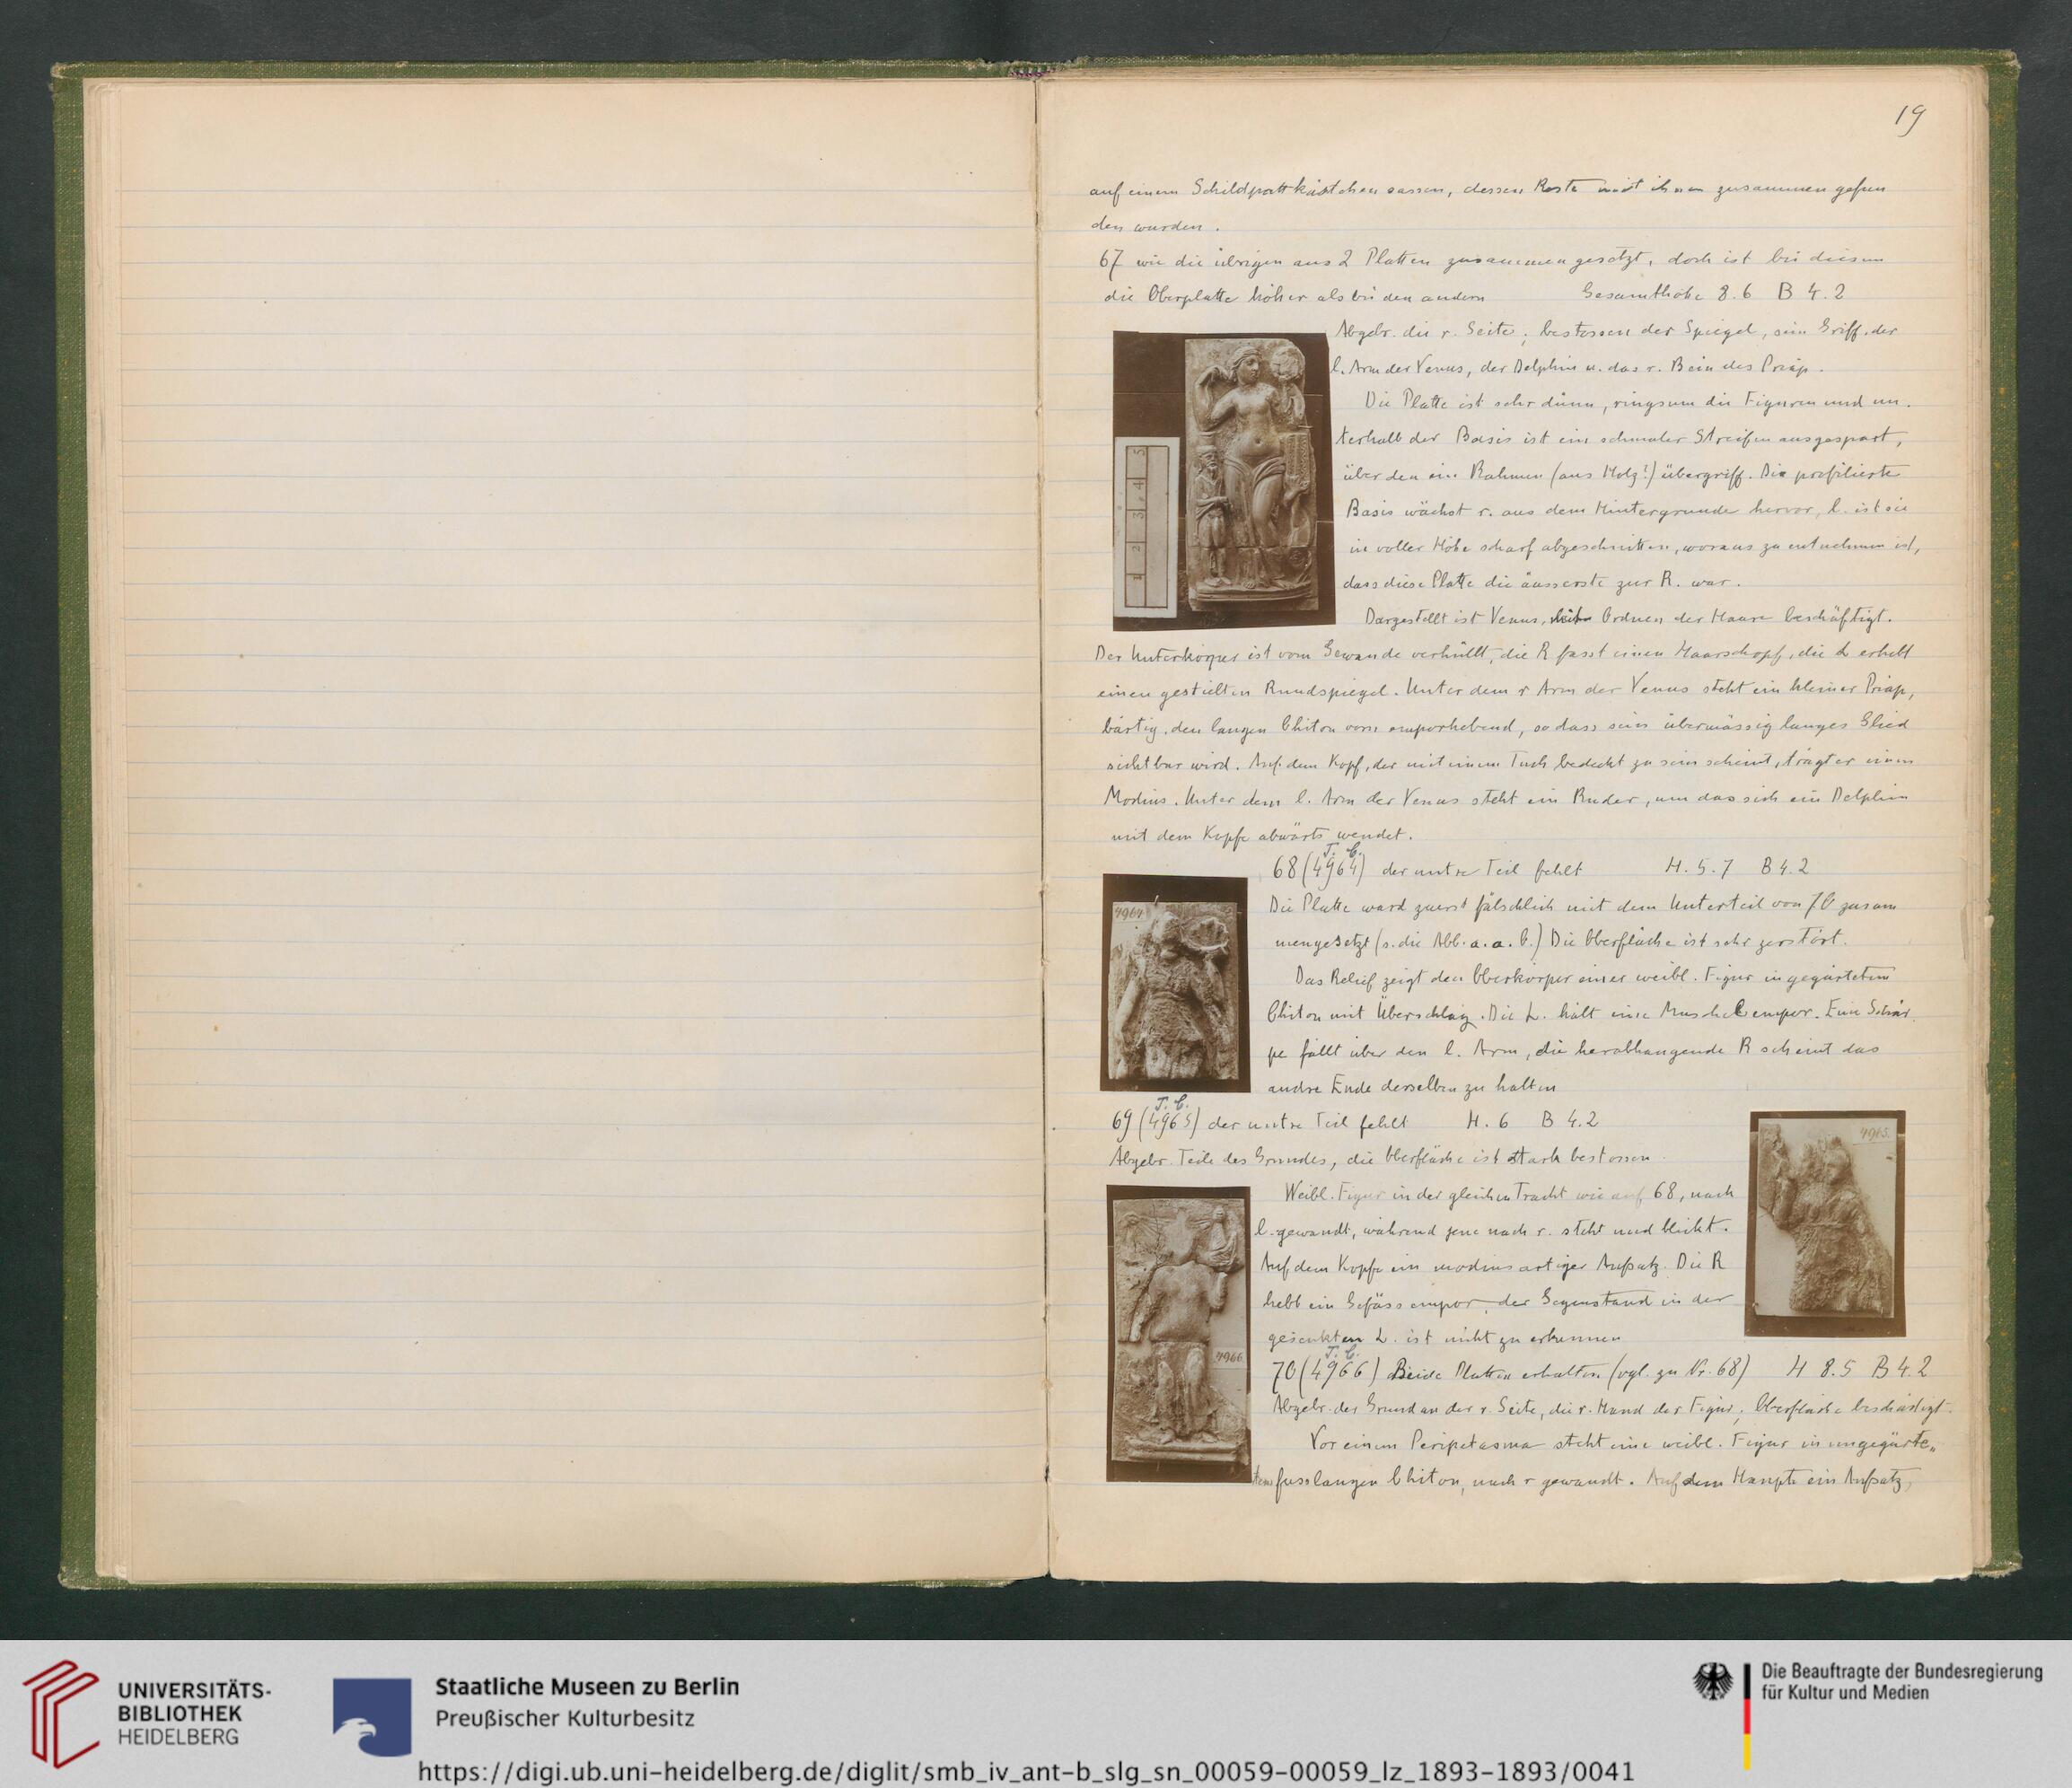 19
auf einem Schildpattkästchen sassen, dessen Reste mit ihnen zusammen gefun
den wurden.
67 wie die übrigen aus 2 Platten zusammengesetzt, doch ist bei diesem
die Oberplatte höher als bei den andern Gesamthöhe 8.6 B 4.2
Abgebr. die r. Seite; bestossen der Spiegel, sein Griff, der
l. Arm der Venus, der Delphin u. das r. Bein des Priap.
Die Platte ist sehr dünn, ringsum die Figuren und un-
terhalb der Basis ist ein schmaler Streifen ausgespart,
über den ein Rahmen (aus Holz?) übergriff. Die profilierte
Basis wächst r. aus dem Hintergrunde hervor, l. ist sie
in voller Höhe scharf abgeschnitten, woraus zu entnehmen ist,
dass diese Platte die äusserste zur R. war.
Dargestellt ist Venus, Ordnen der Haare beschäftigt.
Der Unterkörper ist vom Gewande verhüllt, die R fasst einen Haarschopf, die L erhebt
einen gestielten Rundspiegel. Unter dem r Arm der Venus steht ein kleiner Priap,
bärtig, den langen Chiton vorn emporhebend, so dass sein übermässig langes Glied
sichtbar wird. Auf dem Kopf, der mit einem Tuch bedeckt zu sein scheint, trägt er einen
Modius. Unter dem l. Arm der Venus steht ein Ruder, um das sich ein Delphin
mit dem Kopfe abwärts wendet.
T. C.
68 (4964) der untre Teil fehlt H. 5.7 B 4.2
4964
Die Platte ward zuerst fälschlich mit dem Unterteil von 70 zusam
mengesetzt (s. die Abb. a. a. O.) Die Oberfläche ist sehr zerstört.
Das Relief zeigt den Oberkörper einer weibl. Figur in gegürtetem
Chiton mit Überschlag. Die L. hält eine Muschel empor. Eine Schär
pe fällt über den l. Arm, die herabhangende R scheint das
andre Ende derselben zu halten
T. C.
69 (4965) der untre Teil fehlt H. 6 B 4.2
4965.
Abgebr. Teile des Grundes, die Oberfläche ist stark bestossen.
Weibl. Figur in der gleichen Tracht wie auf 68, nach
l. gewandt, während jene nach r. steht und blickt.
Auf dem Kopfe ein modiusartiger Aufsatz. Die R
hebt ein Gefäss empor, der Gegenstand in der
gesenkten L. ist nicht zu erkennen
T. C.
4966
70 (4966) Beide Platten erhalten (vgl. zu Nr. 68) H 8.5 B 4.2
Abgebr. der Grund an der r. Seite, die r. Hand der Figur; Oberfläche beschädigt.
Vor einem Peripetasma steht eine weibl. Figur in ungegürte-
tem fusslangen Chiton, nach r gewandt. Auf dem Haupte ein Aufsatz,
1 2 3 4 5
UNIVERSITÄTS-
BIBLIOTHEK
HEIDELBERG
Staatliche Museen zu Berlin
Preußischer Kulturbesitz
Die Beauftragte der Bundesregierung
für Kultur und Medien
https://digi.ub.uni-heidelberg.de/diglit/smb_iv_ant-b_slg_sn_00059-00059_lz_1893-1893/0041